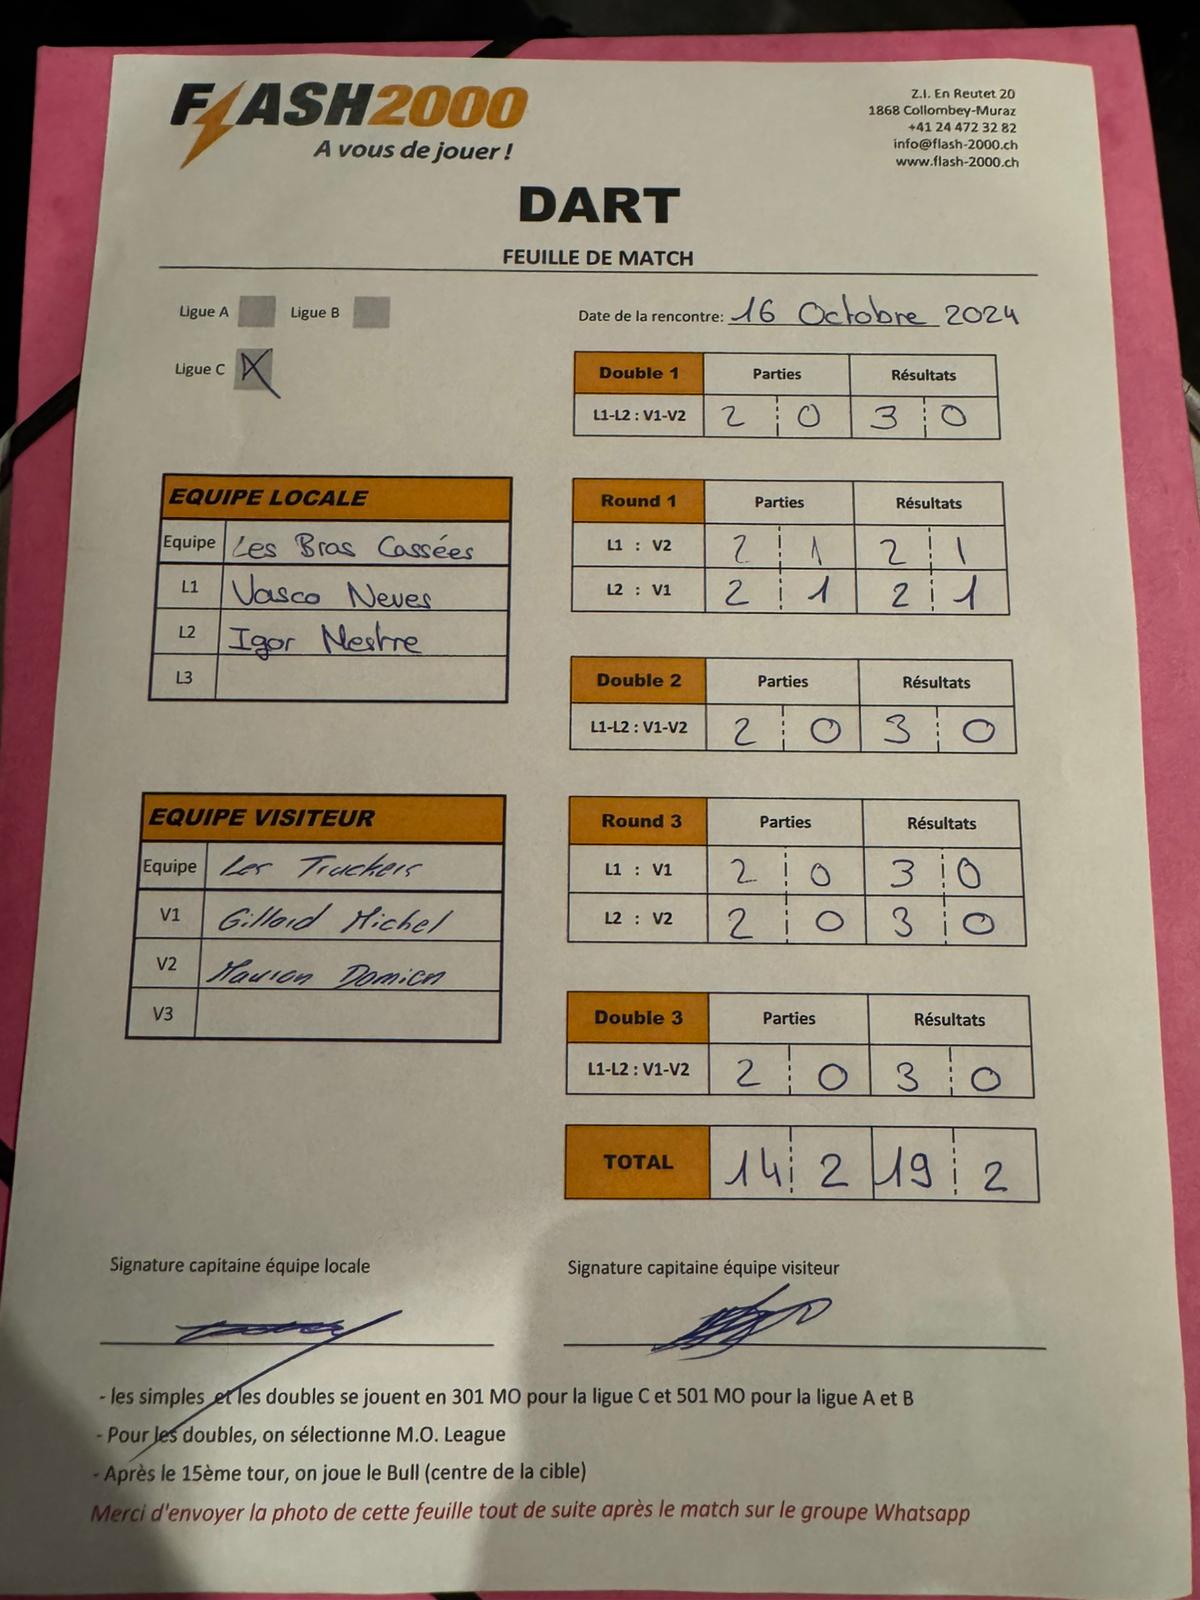 FLASH2000
A vous de jouer !
Z.I. En Reutet 20
1868 Collombey-Muraz
+41 24 472 32 82
info@flash-2000.ch
www.flash-2000.ch
DART
FEUILLE DE MATCH
Ligue A Ligue B
Ligue C X
Date de la rencontre: 16 Octobre 2024
Double 1 Parties Résultats
L1-L2 : V1-V2 2 0 3 0
EQUIPE LOCALE
Equipe Les Bras Cassées
L1 Vasco Neves
L2 Igor Mestre
L3
Round 1 Parties Résultats
L1 : V2 2 1 2 1
L2 : V1 2 1 2 1
Double 2 Parties Résultats
L1-L2 : V1-V2 2 0 3 0
EQUIPE VISITEUR
Equipe Les Truckers
V1 Gillard Michel
V2 Damien
V3
Round 3 Parties Résultats
L1 : V1 2 0 3 0
L2 : V2 2 0 3 0
Double 3 Parties Résultats
L1-L2 : V1-V2 2 0 3 0
TOTAL 14 2 19 2
Signature capitaine équipe locale
Signature capitaine équipe visiteur
- les simples et les doubles se jouent en 301 MO pour la ligue C et 501 MO pour la ligue A et B
- Pour les doubles, on sélectionne M.O. League
- Après le 15ème tour, on joue le Bull (centre de la cible)
Merci d'envoyer la photo de cette feuille tout de suite après le match sur le groupe Whatsapp